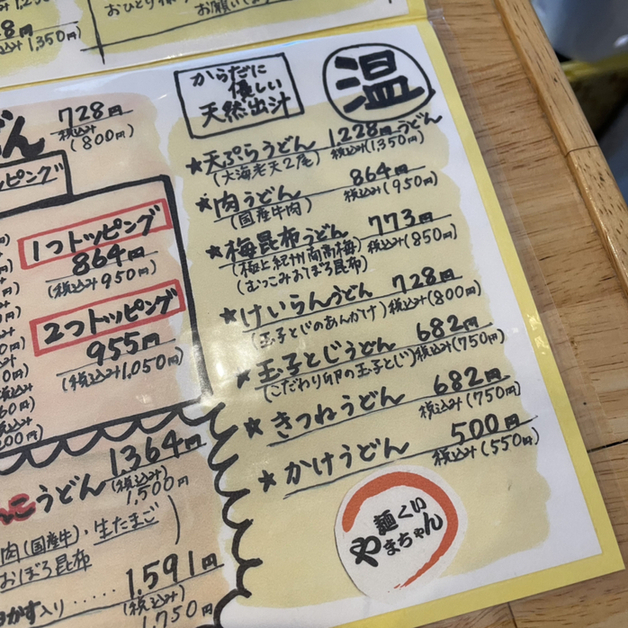 1,350円)
おひとり様
お願い
からだに
優しい
天然出汁
温
うどん
728円
税込み
(800円)
ッピング
1つトッピング
864円
(税込み950円)
2つトッピング
955円
(税込み1,050円)
★天ぷらうどん 1,228円
(大海老天2尾) 税込み(1,350円)
★肉うどん 864円
(国産牛肉) 税込み(950円)
★梅昆布うどん 773円
(極上紀州南高梅) 税込み(850円)
(むっこみおぼろ昆布)
★けいらんうどん 728円
(玉子とじのあんかけ) 税込み(800円)
★玉子とじうどん 682円
(こだわり卵の玉子とじ) 税込み(750円)
★きつねうどん 682円
税込み(750円)
★かけうどん 500円
税込み(550円)
麺くい
やまちゃん
1,364円
うどん (税込み)
1,500円
肉(国産牛)・生たまご
おぼろ昆布
かす入り…… 1,591円
(税込み)
1,750円